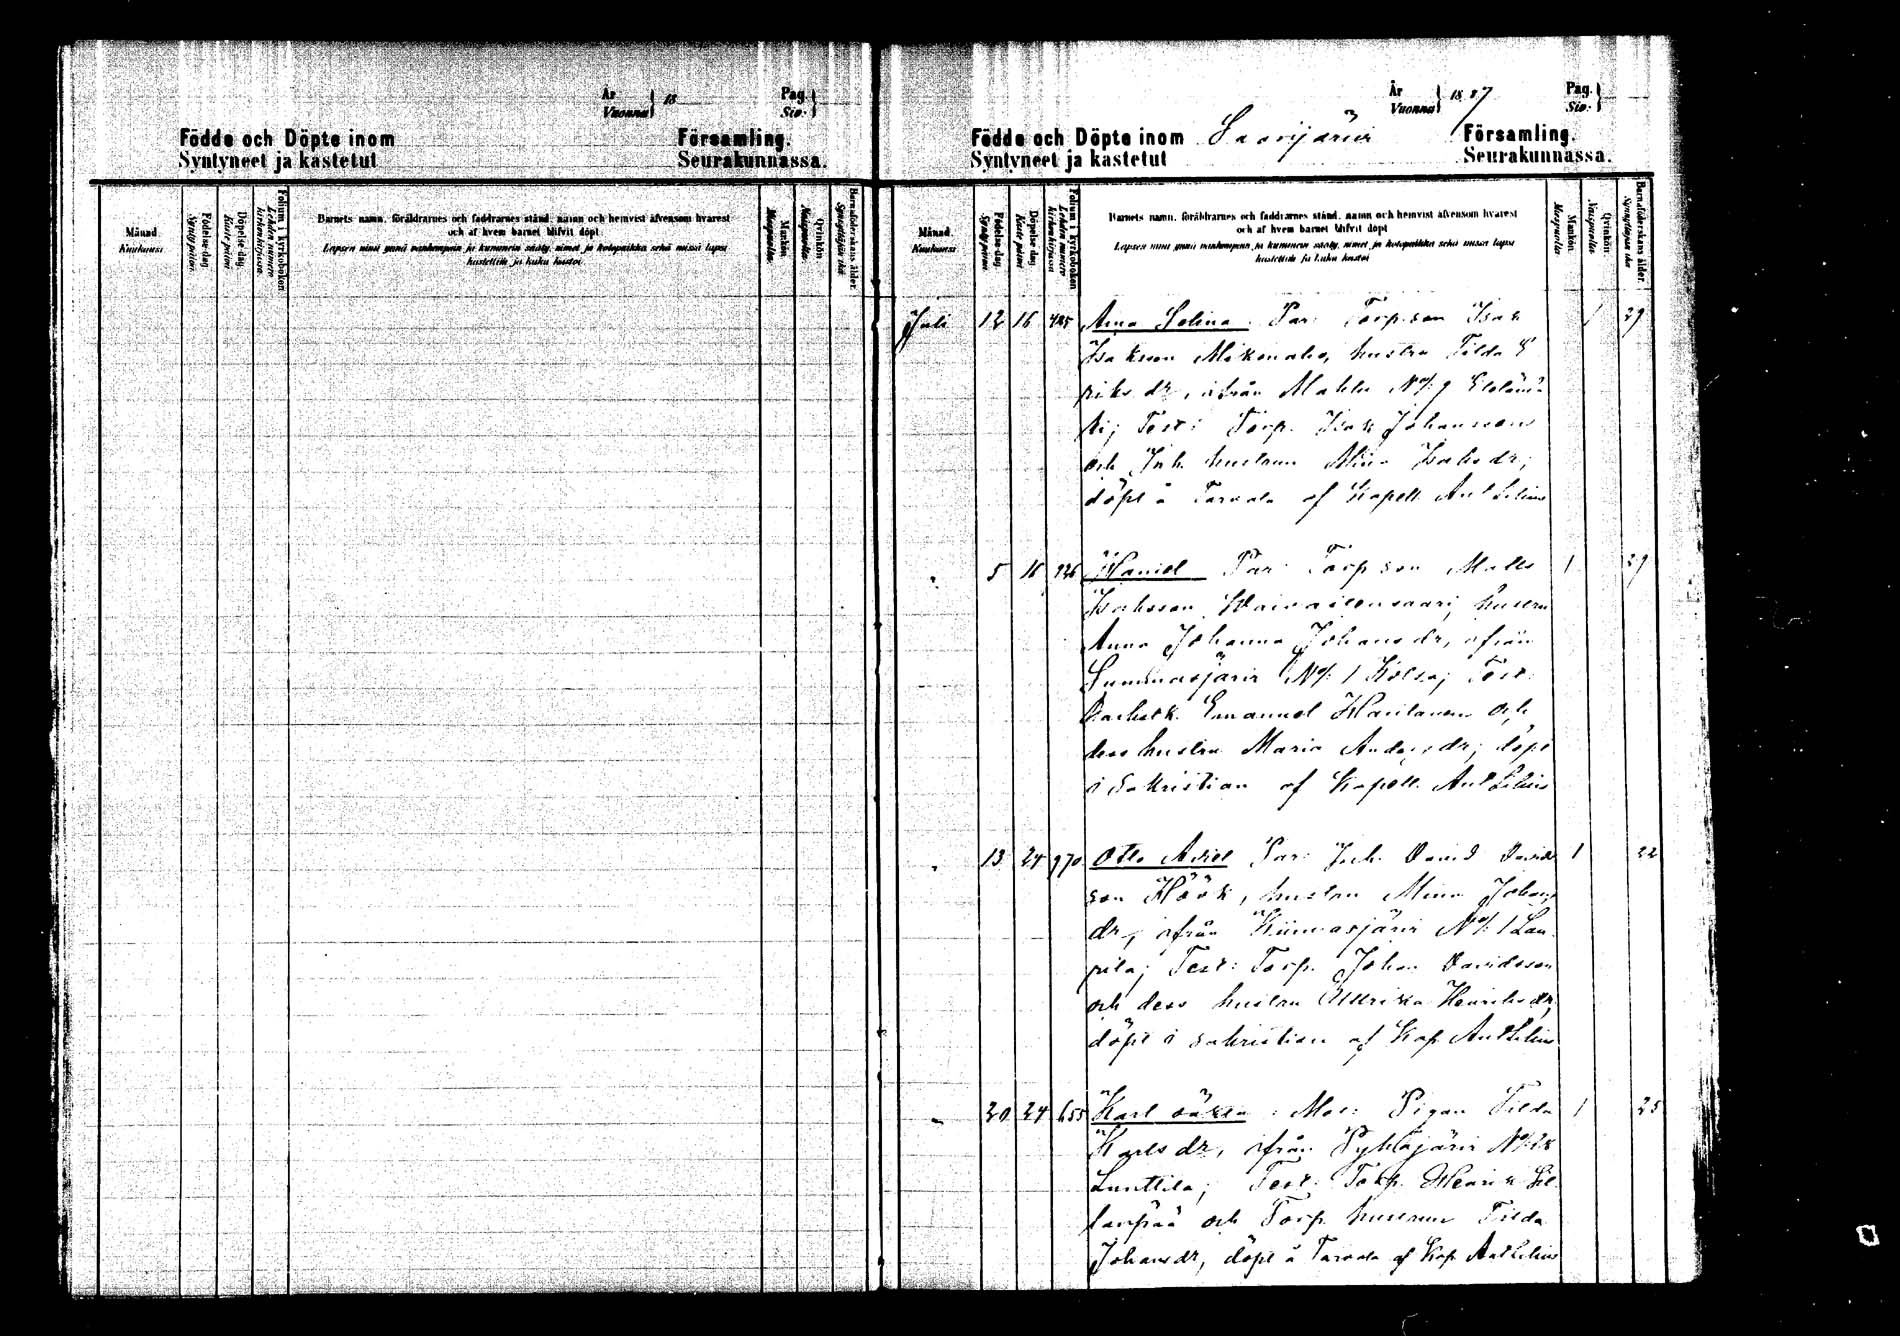 År
Vuonna } 18
Pag.
Siv. }
Födde och Döpte inom Församling.
Syntyneet ja kastetut Seurakunnassa.
Månad.
Kuukausi.
Födelse-dag.
Syntypäivä.
Döpelse-dag.
Kaste päivä.
Folium i kyrkoboken
Lehden numero kirkonkirjassa
Barnets namn, föräldrarnes och faddrarnes stånd, namn och hemvist äfvensom hvarest
och af hvem barnet blifvit döpt
Lapsen nimi ynnä vanhempain ja kummein sääty, nimet ja kotopaikka sekä missä lapsi
kastettiin ja kuka kastoi
Mankön
Miespuolta.
Qvinkön
Naispuolta.
Barnaföderskans ålder.
Synnyttäjän ikä
År
Vuonna } 1887
Pag.
Siv. }
Födde och Döpte inom Saarijärvi Församling.
Syntyneet ja kastetut Seurakunnassa.
Månad.
Kuukausi.
Födelse-dag.
Syntypäivä.
Döpelse-dag.
Kaste päivä
Folium i kyrkoboken
Lehden numero kirkonkirjassa
Barnets namn, föräldrarnes och faddrarnes stånd, namn och hemvist äfvensom hvarest
och af hvem barnet blifvit döpt
Lapsen nimi ynnä vanhempain ja kummein sääty, nimet ja kotopaikka sekä missä lapsi
kastettiin ja kuka kastoi
Mankön
Miespuolta
Qvinkön
Naispuolta
Barnaföderskans ålder.
Synnyttäjän ikä
Juli 12 16 Selina Par: Torp.son Isak 1 29
Isaksson hustru Tilda E
riks dr, ifrån Mahlu N:o 9
Test: Torp. Isak Johansson
och Inh. hustrun Isaks dr;
döpt å Tarvala af Kapell. Ant Lilius
" 5 16 Par: Torp son Matts 1 29
Isaksson hustru
Anna Johanna Johans dr, ifrån
Summasjärvi N:o 1 Test:
Emanuel och
dess hustru Maria Anders dr; döpt
i sakristian af Kapell. Ant Lilius
" 13 24 970 Otto Par: Inh. David Davids 1 22
son Höök, hustru Mina Johans
dr, ifrån Kiimasjärvi N:o 1 Lam
pila; Test: Torp. Johan Davidsson
och dess hustru Ulrika Henriks dr,
döpt i sakristian af Kap. Ant Lilius
" 20 24 655 Karl oäkta Mod: Pigan Tilda 1 25
Karls dr, ifrån Pyhäjärvi
Lunttila; Test: Torp. Henrik Sil
lanpää och Torp. hustrun Tilda
Johans dr, döpt å Tarvala af Kap. Ant Lilius